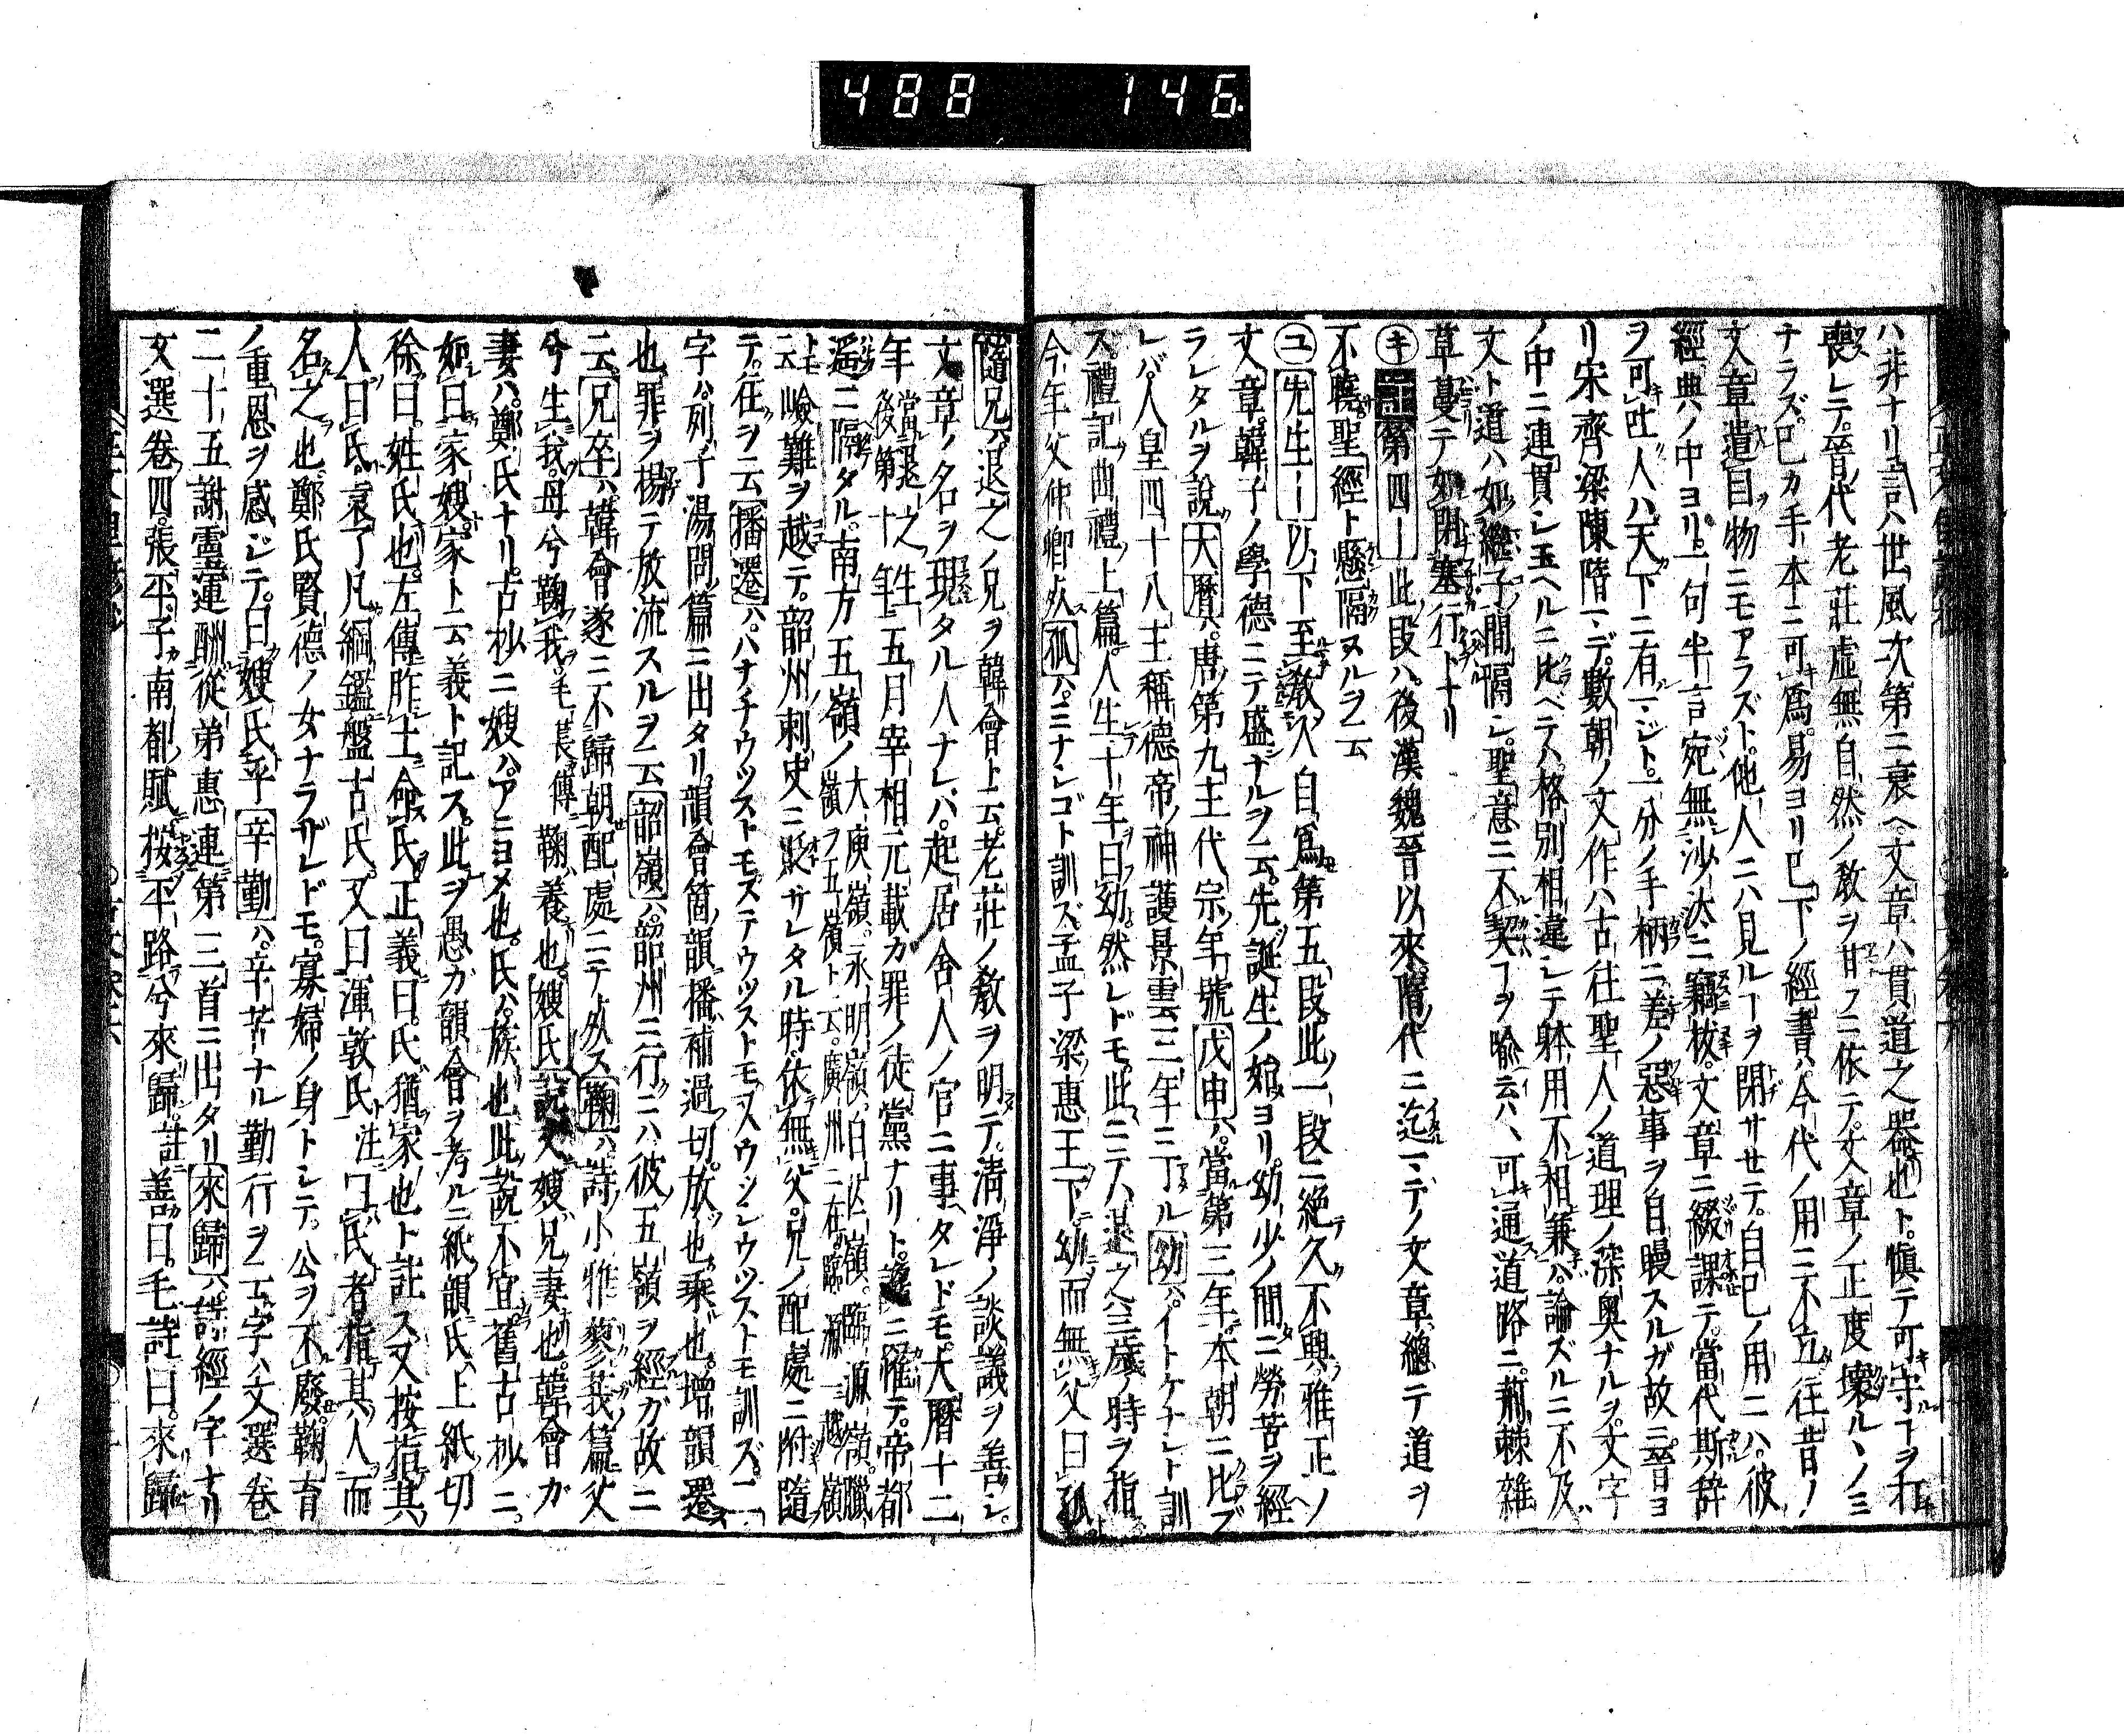 488 146
ハ非ナリ言ハ世風次第ニ衰ヘ文章ハ貫道之器也ト。愼テ可守コヲ
喪レテ。晉代老莊虚無自然ノ敎ヲ甘フニ依テ。文章ノ正度壞ルヽノミ
ナラズ。巳カ手本ニ可爲。易ヨリ巳下ノ經書ハ。今代ノ用ニ不立。往昔ノ
文章遣自物ニモアラズト。他人ニハ見ルコヲ閉サセテ。自己ノ用ニハ。彼
經典ノ中ヨリ。一句半言宛無沙汰ニ竊抜。文章ニ綴課テ。當代斯辞
ヲ可吐人ハ天下ニ有マジト。一分ノ手柄ニ差ノ惡事ヲ自鏝スルガ故ニ。晉ヨ
リ宋齊梁陳隋マデ。數朝ノ文作ハ古往聖人ノ道理ノ深奥ナルヲ。文字
ノ中ニ連貫シ玉ヘルニ比ベテハ格別相違シテ。躰用不相兼。論ズルニ不及
文ト道ハ如繼子間隔シ。聖意ニ不契コヲ喩云ハヽ可通道路ニ。荊棘雜
草蔓テ如閉塞行トナリ
㋖註第四ー此段ハ。後漢魏晉以來隋代ニ迄マデノ文章。總テ道ヲ
不曉聖經ト懸隔ヌルヲ云
㋴先生ー以下至敎人自爲第五段。此一段ニ絶久不興雅正ノ
文章。韓子ノ學德ニテ盛ナルヲ云。先誕生ノ始ヨリ。幼少ノ間ニ勞苦ヲ經
ラレタルヲ說大曆ハ。唐第九主代宗ノ年號戊申ハ。當第三年。本朝ニ比ブ
レバ。人皇四十八主稱德帝神護景雲二年ニ丁ル幼ハ。イトケナシト訓
ズ。禮記曲禮上篇。人生十年曰幼。然レドモ。此ニテハ退之三歳ノ時ヲ指
今年父仲卿死ス孤ハ。ミナシゴト訓ズ。孟子梁惠王下。幼而無父曰孤。
隨兄ハ。退之ノ兄ヲ韓會ト云。老莊ノ敎ヲ明テ。淸淨ノ談議ヲ善シ。
文章ノ名ヲ現タル人ナレバ。起居舍人ノ官ニ事タレドモ。大曆十二
年當退之生後第十年五月宰相元載ガ罪ノ徒黨ナリト。讒ニ罹テ。帝都
遥ニ隔タル。南方五嶺ノ大庾嶺。永明嶺。白芒嶺。臨源嶺。臘嶺ヲ五嶺ト云。廣州ニ在。
云嶮難ヲ越テ。韶州刺史ニ貶サレタル時。依無父。兄ノ配處ニ附隨
テ。往ヲ云播遷ハ。ハナチウツストモステウツストモヌスウシウツストモ訓ズ。二
字ハ。列子湯問篇ニ出タリ。韻會箇韻播補過切。放也。乘也。增韻遷
也。罪ヲ揚テ放流スルヲ云韶嶺ハ。韶州ニ行ニハ彼五嶺ヲ經ガ故ニ
云兄卒ハ。韓會遂ニ不歸朝。配處ニテ死ス鞠ハ。詩小雅蓼莪篇父
兮生我。母兮鞠我。毛萇傳鞠養也。嫂氏說文嫂兄妻也。韓會ガ
妻ハ。鄭氏ナリ。古抄ニ嫂ハ。アニヨメ也。氏ハ。族也此說不宜。舊古抄ニ。
如曰家嫂。家ト云義ト記ス。此ヲ愚ガ韻會ヲ考ルニ紙韻氏上紙切
徐曰。姓氏也。左傳胙土命氏。正義曰。氏猶家也ト註ス又按指其
人曰氏。袁了凡綱鑑盤古氏。又曰渾敦氏注曰氏者。指其人而
名之也。鄭氏賢德ノ女ナラザレドモ。寡婦ノ身トシテ。公ヲ不廢鞠育
ノ重恩ヲ感ジテ。曰嫂氏乎辛勤ハ。辛苦ナル勤行ヲ云字ハ文選卷
二十五謝靈運酬從弟惠連第三首ニ出タリ來歸ハ。詩經ノ字ナリ
文選卷四。張平子南都賦按平路兮來歸。註善曰。毛詩曰。來歸